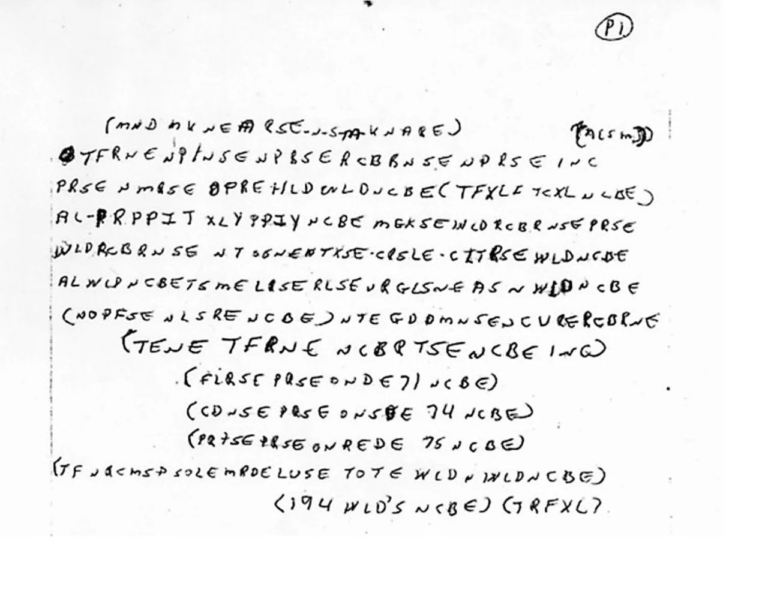 P1
(MND MKNEARSE-N-S-MKNARE) (ACSM)
TFRNENPTNSENPBSERCBBRNSENPRSEINC
PRSENMRSEOPREHLDWLDNCBE(TFXLFTCXLNCBE)
AL-PRPPITXLYPPIYNCBEMGKSEWLDRCBRNSEPRSE
WLDRCBRNSENTSGNENTXSE-CRSLE-CITRSEWLDNCBE
ALWLPNCBETSMELRSERLSEURGLSNEASNWLDNCBE
(NOPFSENLSRENCBE)NTEGDDMNSENCURERCBRNE
(TENETFRNENCBRTSENCBEINC)
(FLRSEPRSEONDE71NCBE)
(CDNSEPRSEONSDE74NCBE)
(PRTSEPRSEONREDE75NCBE)
(TFNRCMSPSOLEMRDELUSETOTEWLDNWLDNCBE)
(194WLD'SNCBE)(TRFXL)